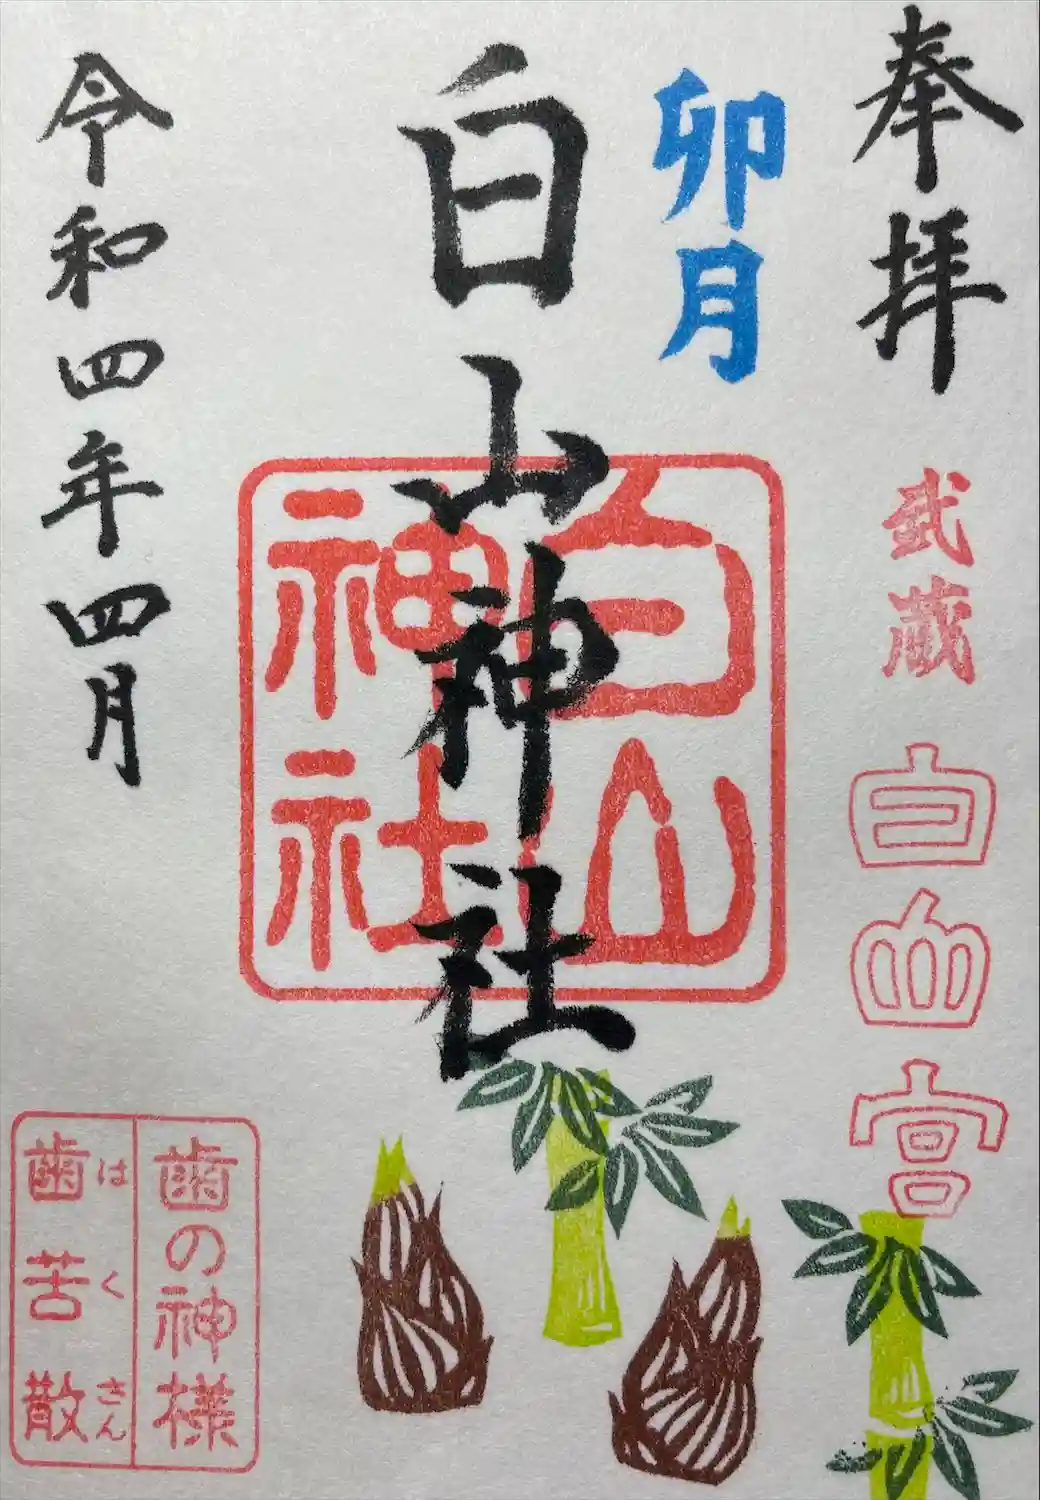 奉拝
武蔵
白山宮
卯月
白山神社
白山
神社
令和四年四月
歯の神様
はくさん
歯苦散